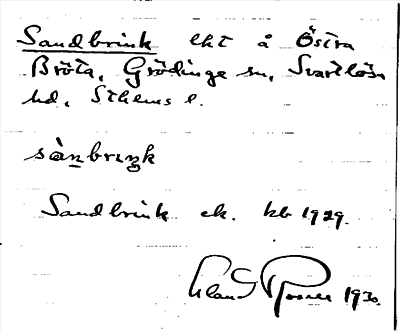 Sandbrink lht å Östra
Bröta, Grödinge sn, Svartlösa
hd, Sthlms l.
sànbrıŋk
Sandbrink ek. kb 1929.
1930.